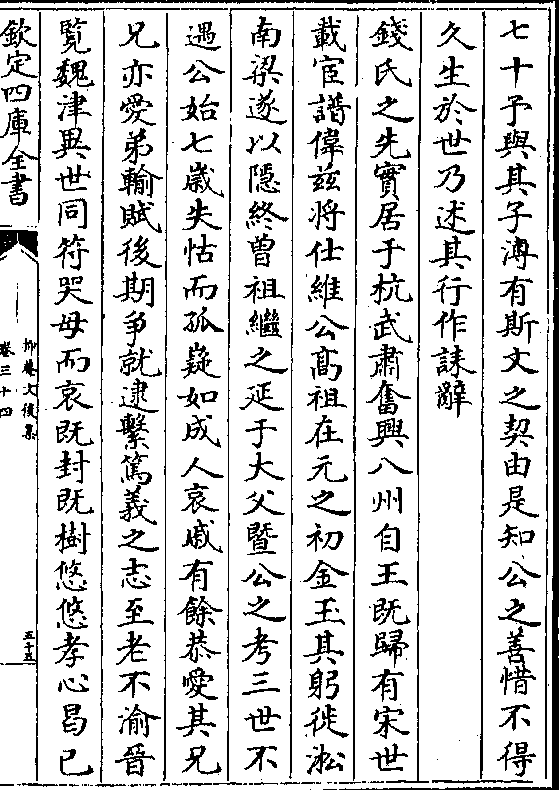 七十予與其子溥有斯文之契由是知公之善惜不得
久生於世乃述其行作誄辭
錢氏之先實居于杭武肅奮興八州自王既歸有宋世
載宦譜偉兹將仕維公髙祖在元之初金玉其躬徙淞
南梁遂以隠終曾祖繼之延于大父暨公之考三世不
遇公始七嵗失怙而孤嶷如成人哀戚有餘恭愛其兄
兄亦愛弟輸賦後期爭就逮繫篤義之志至老不渝晉
覧魏津異世同符哭母而哀既封既樹悠悠孝心曷已
欽定四庫全書
抑菴文後集
卷三十四
五十五